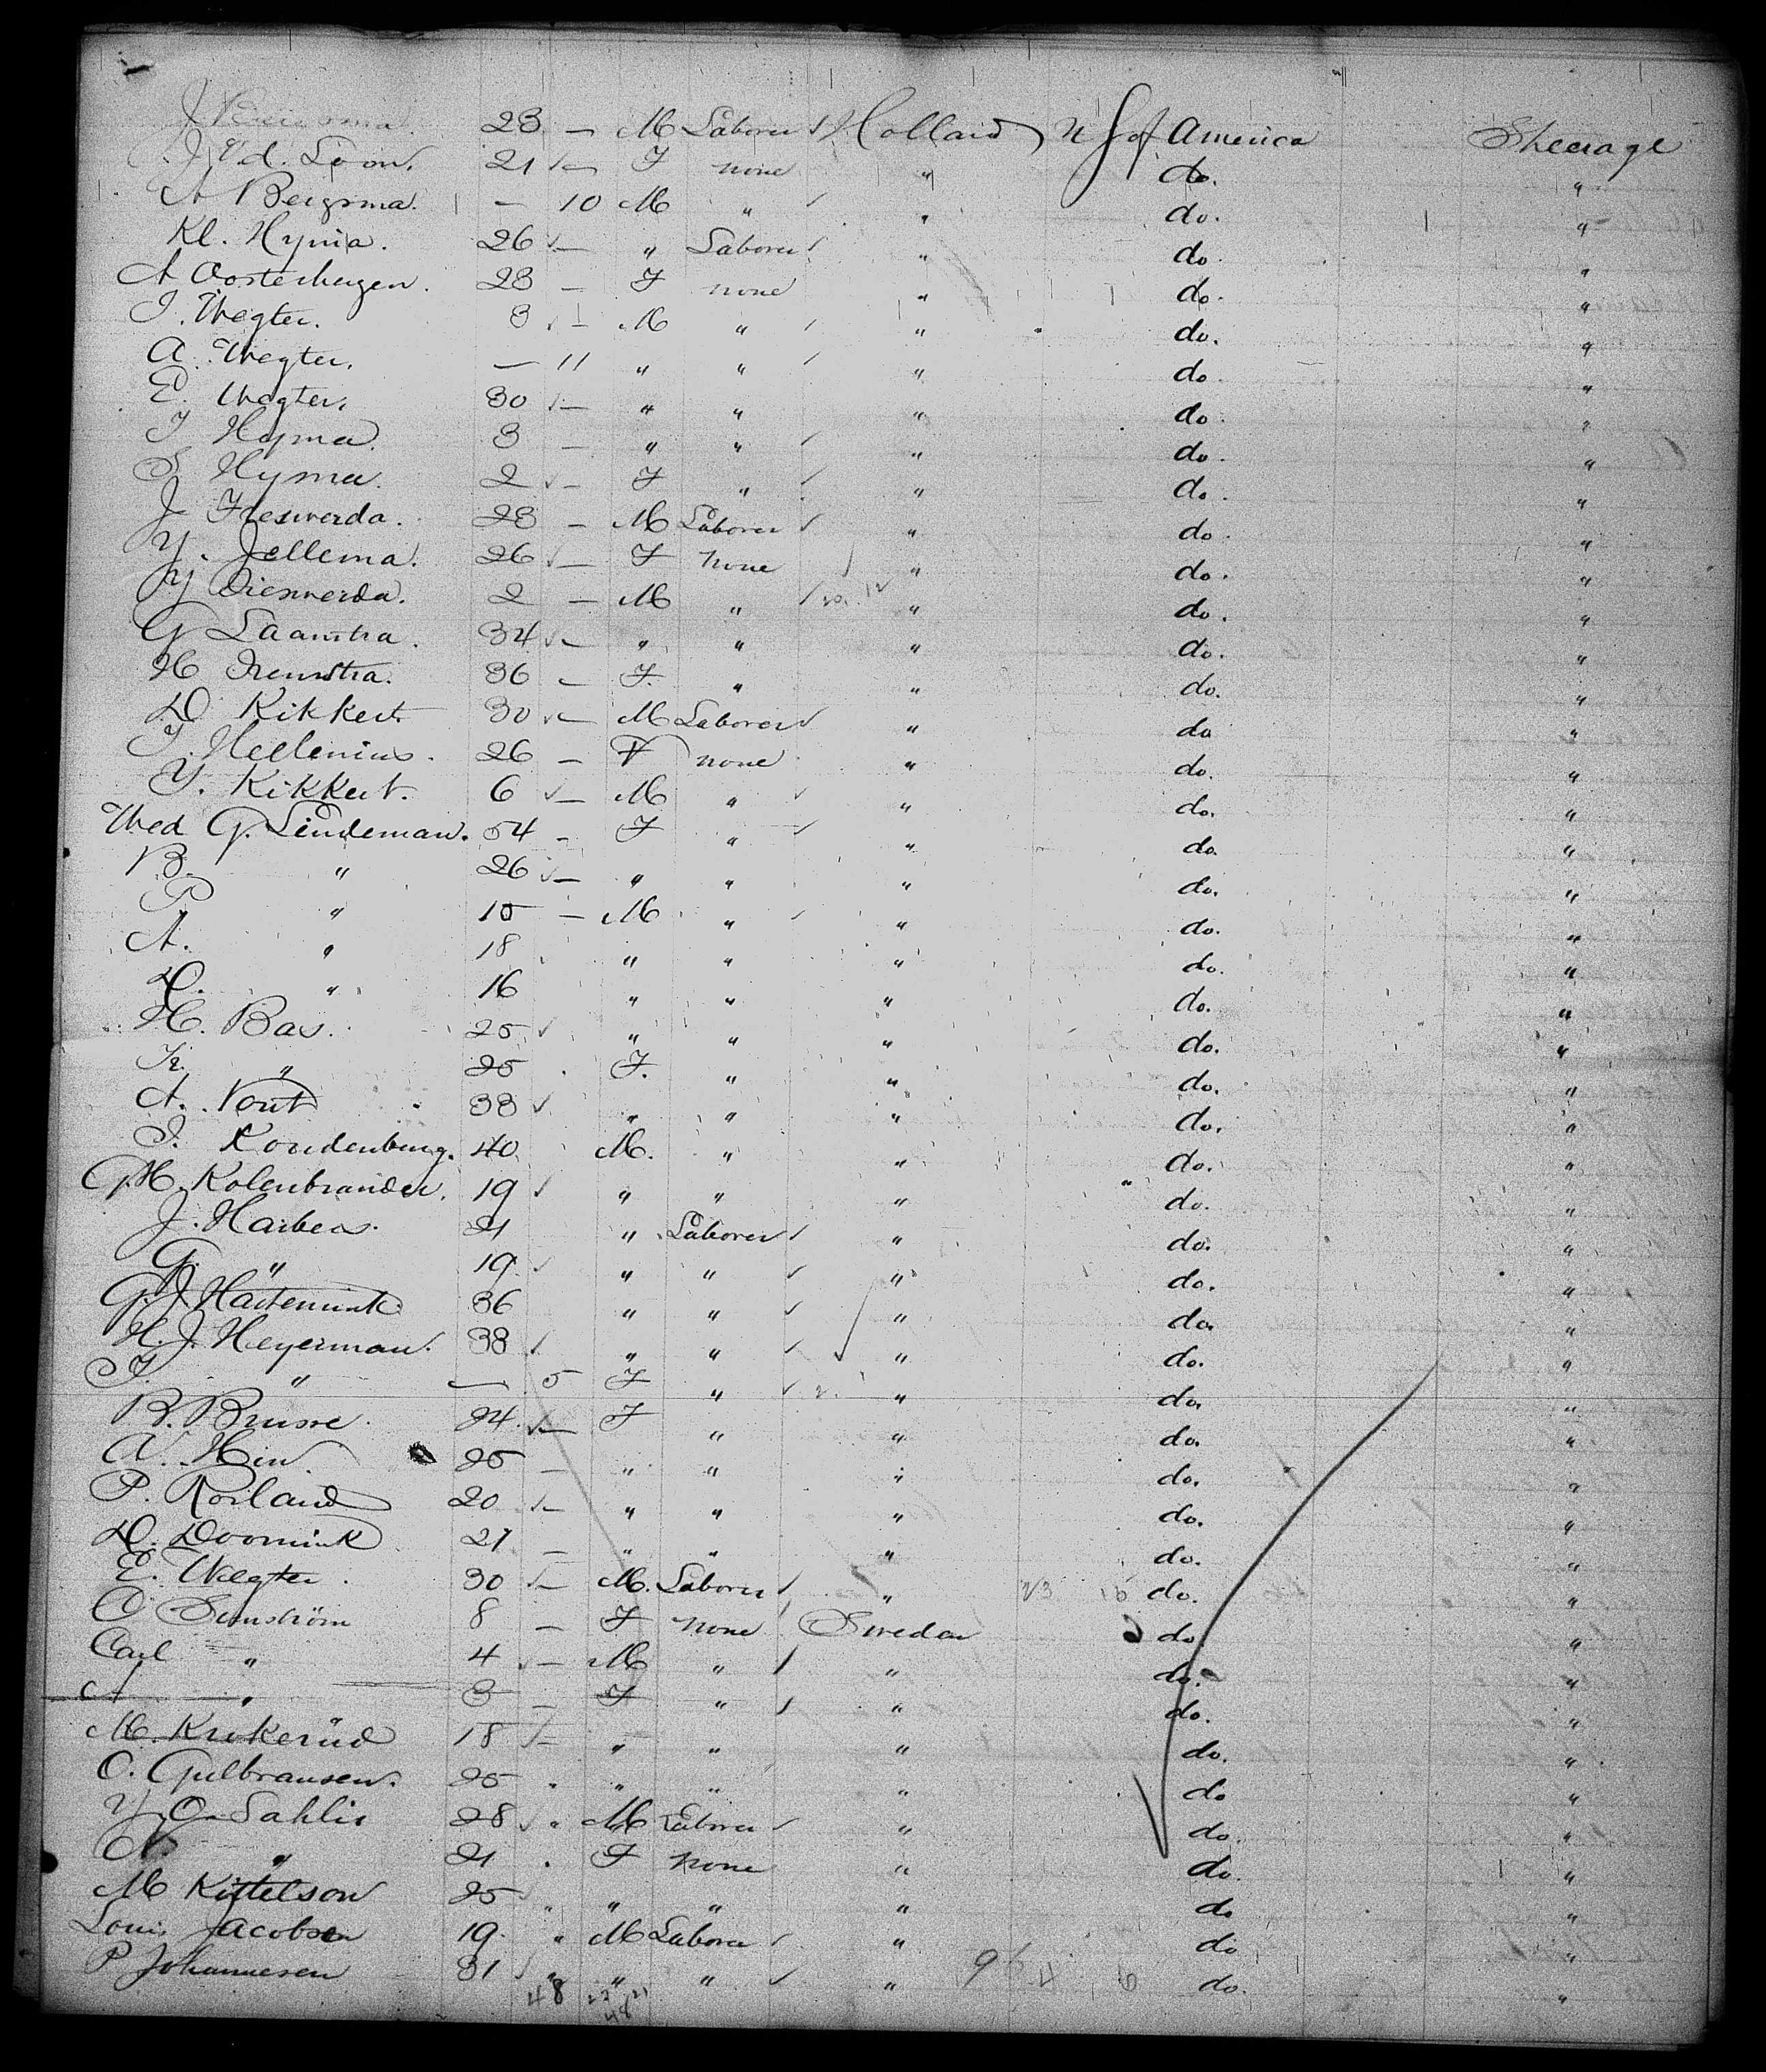 J 23 — M Laborer Holland U S of America Steerage
J. V. d. Loon. 21 — F none " do. "
A Bergsma. — 10 M " " do. "
Kl. Hyma. 26 — " Laborer " do. "
A Oosterhuzen. 23 — F none " do. "
J. Wegter. 3 — M " " do. "
A. Wegter. — 11 " " " do. "
E. Wegter. 30 — " " " do. "
J Hyma. 3 — " " " do. "
S Hyma. 2 — F " " do. "
J 28 — M Laborer " do. "
Y. Jellema. 26 — F None " do. "
Y 2 — M " " do. "
G Laanstra. 34 — " " " do. "
H 36 — F. " " do. "
D Kikkert. 30 — M Laborer " do "
J. Hellenius. 26 — F none " do. "
Y. Kikkert. 6 — M " " do. "
Wed G. Lindeman. 54 — F " " do. "
B. " 26 — " " " do. "
P " 15 — M " " do. "
A. " 18 " " " do. "
D. " 16 " " " do. "
H. Bas. 25 " " " do. "
" 25 F. " " do. "
A. Vont 33 " " " do. "
J. Koudenburg. 40 M. " " do. "
G.H. Kolenbrander. 19 " " " do. "
J. Harbers. 21 " Laborer " do. "
G. " 19. " " " do. "
G. J Hartemink. 36 " " " do. "
H. J. Heyerman. 38 " " " do. "
" — 5 F " " do. "
B. Brusse. 24. — F " " do. "
A. Hin. 25 — " " " do. "
P. Roiland 20 — " " " do. "
D. Doornink 21 — " " " do. "
E. Wegter. 30 — M. Laborer " do. "
8 — F none Sweden do. "
Carl " 4 — M " " do. "
A " 3 — F " " do. "
M. Krokerud 18 — " " " do. "
O. Gulbransen. 25 " " " " do "
Y. O. Sahlis 28 " M Laborer " do. "
A. " 21 " F none " do. "
M Kittelson 25 " " " " do "
Louis Jacobsen 19. " M Laborer " do "
P Johannesen 31 " " " " do. "
48
48